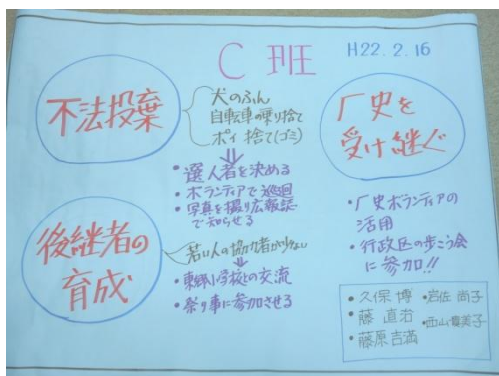 C班
H22.2.16
不法投棄
犬のふん
自転車の乗り捨て
ポイ捨て(ゴミ)
・選人者を決める
・ボランティアで巡回
・写真を撮り広報誌
で知らせる
後継者の
育成
若い人の協力者が少ない
・東郷小学校との交流
・祭り事に参加させる
厂史を
受け継ぐ
・厂史ボランティアの
活用
・行政区の歩こう会
に参加!!
・久保 博
・岩佐 尚子
・藤 直治
・西山
・藤原吉満